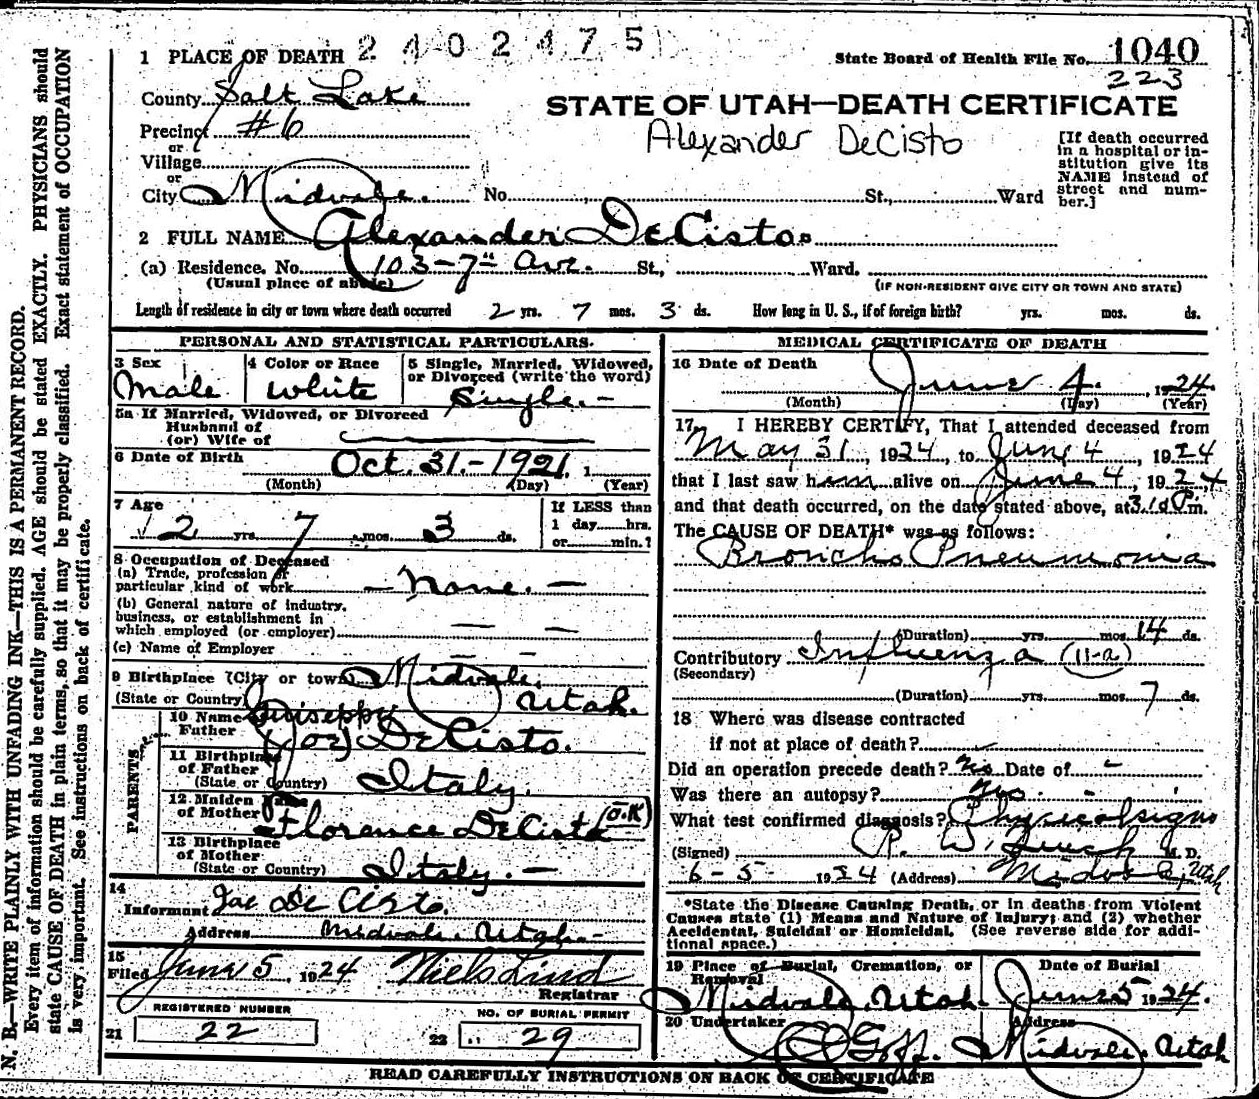 2102475
1 PLACE OF DEATH
State Board of Health File No. 1040
223
County Salt Lake
STATE OF UTAH—DEATH CERTIFICATE
Precinct #6
or
Village
or
City Midvale. No. St., Ward
Alexander DeCisto
[If death occurred
in a hospital or in-
stitution give its
NAME instead of
street and num-
ber.]
2 FULL NAME Alexander DeCisto.
(a) Residence. No. 103-7th Ave. St., Ward.
(Usual place of abode) (IF NON-RESIDENT GIVE CITY OR TOWN AND STATE)
Length of residence in city or town where death occurred 2 yrs. 7 mos. 3 ds. How long in U. S., if of foreign birth? yrs. mos. ds.
PERSONAL AND STATISTICAL PARTICULARS.
3 Sex 4 Color or Race 5 Single, Married, Widowed,
or Divorced (write the word)
Male White Single.-
5a If Married, Widowed, or Divorced
Husband of
(or) Wife of
6 Date of Birth Oct. 31.-1921. 1
(Month) (Day) (Year)
7 Age If LESS than
2 yrs. 7 mos. 3 ds. 1 day hrs.
or min.?
8 Occupation of Deceased
(a) Trade, profession or
particular kind of work — None. —
(b) General nature of industry,
business, or establishment in
which employed (or employer) — —
(c) Name of Employer — —
9 Birthplace (City or town) Midvale.
(State or Country) Utah.
PARENTS
10 Name Guiseppy
Father (Joe) DeCisto.
11 Birthplace
of Father
(State or Country) Italy.
12 Maiden Name
of Mother Florence DeCisto (O.K)
13 Birthplace
of Mother
(State or Country) Italy.-
14
Informant Joe De Cisto.
Address Midvale. Utah.-
15
Filed June 5 1924 Niels Lind
Registrar
REGISTERED NUMBER NO. OF BURIAL PERMIT
21 22 22 29
MEDICAL CERTIFICATE OF DEATH
16 Date of Death
June 4. 1924.
(Month) (Day) (Year)
17 I HEREBY CERTIFY, That I attended deceased from
May 31, 1924, to June 4, 1924
that I last saw him alive on June 4, 1924
and that death occurred, on the date stated above, at P.m.
The CAUSE OF DEATH* was as follows:
Broncho Pneumonia
(Duration) yrs. mos. 14 ds.
Contributory Influenza (11-a)
(Secondary)
(Duration) yrs. mos. 7 ds.
18 Where was disease contracted
if not at place of death?
Did an operation precede death? No Date of -
Was there an autopsy?
What test confirmed diagnosis? Physical signs
(Signed) P. W. M. D.
6-5 1924 (Address) Midvale, Utah
*State the Disease Causing Death, or in deaths from Violent
Causes state (1) Means and Nature of Injury; and (2) whether
Accidental, Suicidal or Homicidal. (See reverse side for addi-
tional space.)
19 Place of Burial, Cremation, or Date of Burial
Removal
Midvale, Utah. June 5 1924.
20 Undertaker Address
Goff. Midvale. Utah
READ CAREFULLY INSTRUCTIONS ON BACK OF CERTIFICATE
N. B.—WRITE PLAINLY WITH UNFADING INK—THIS IS A PERMANENT RECORD.
Every item of information should be carefully supplied. AGE should be stated EXACTLY. PHYSICIANS should
state CAUSE OF DEATH in plain terms, so that it may be properly classified. Exact statement of OCCUPATION
is very important. See instructions on back of certificate.